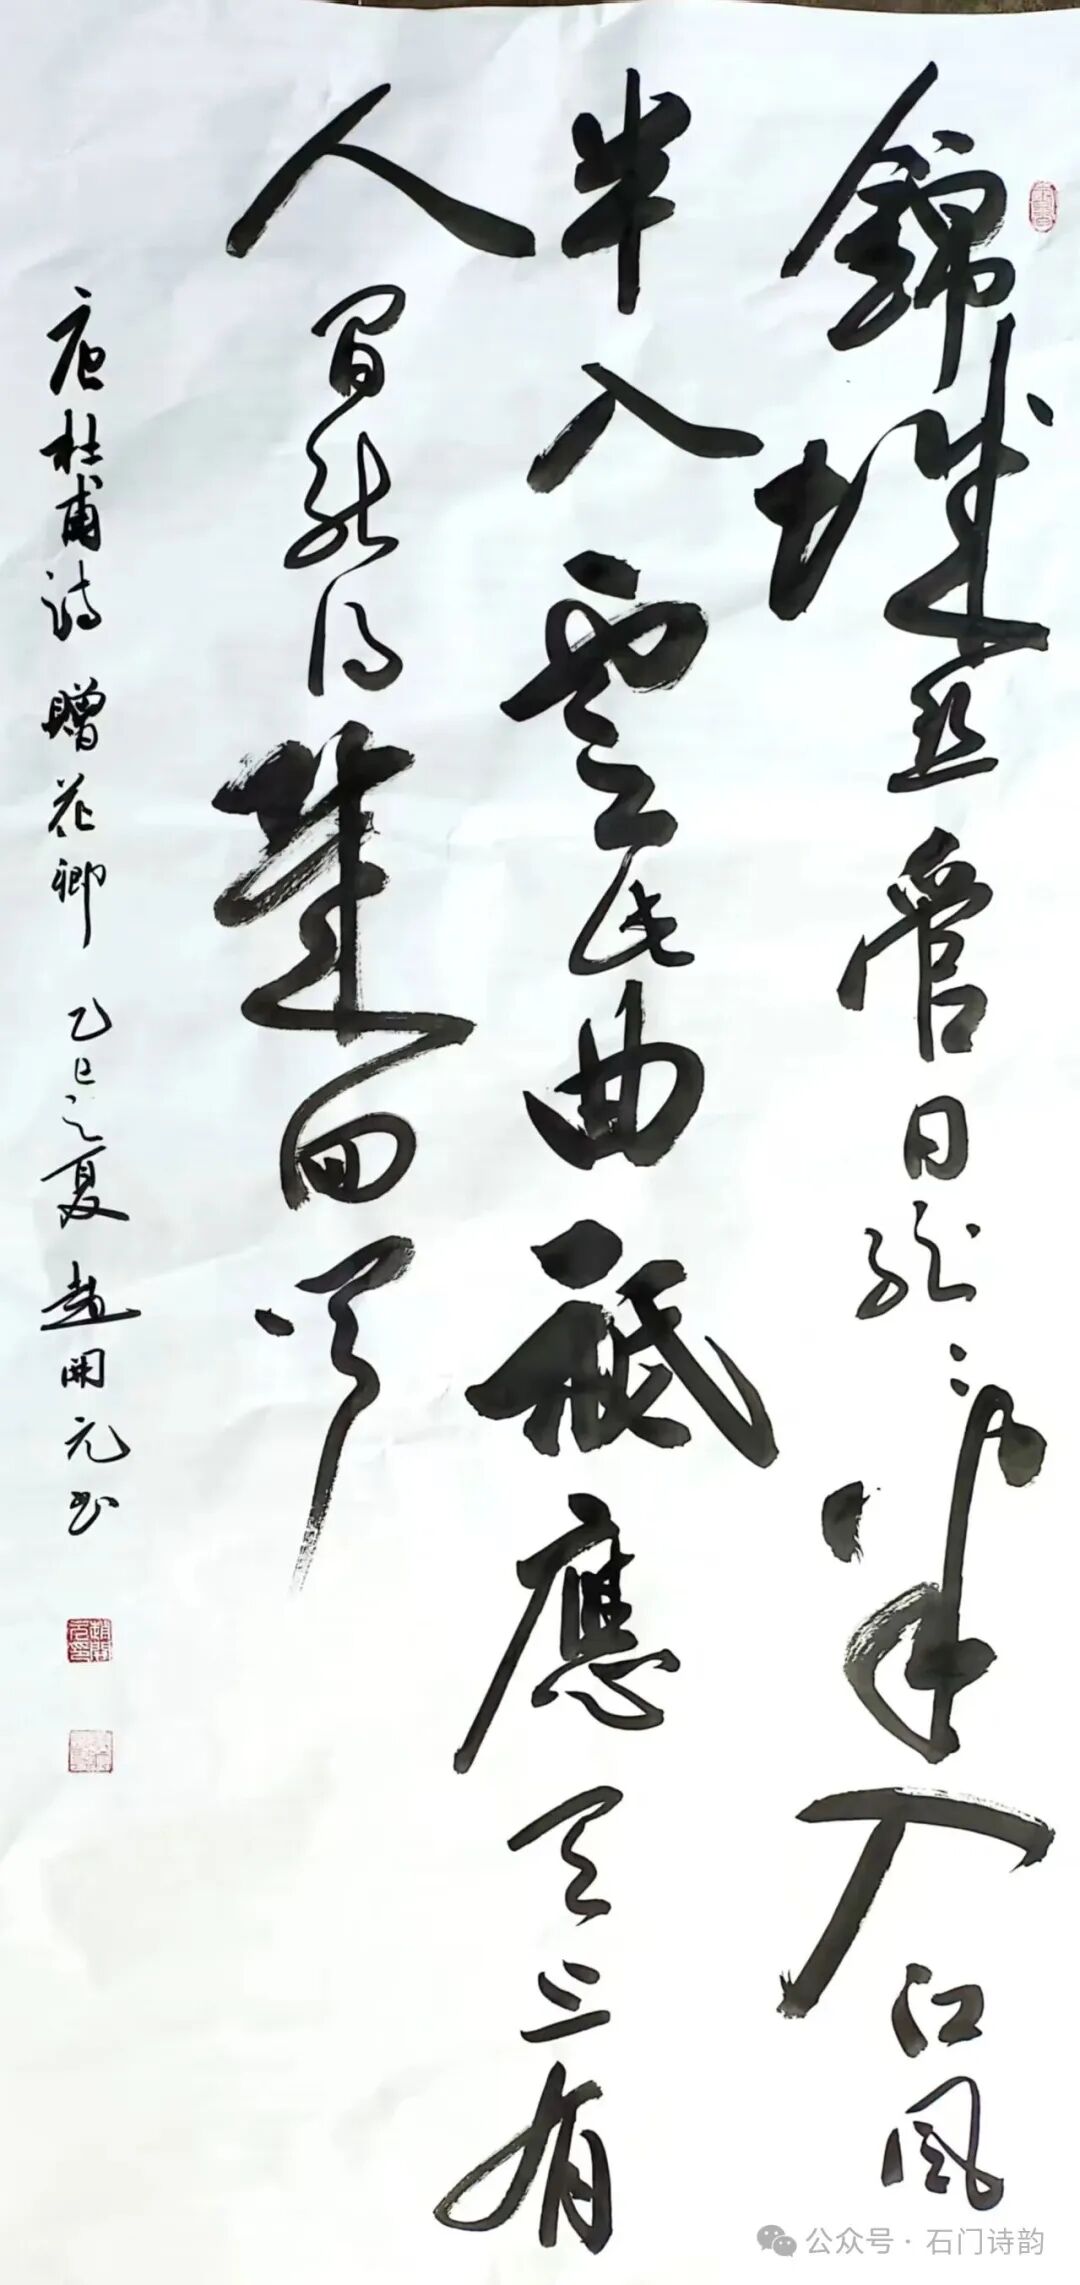 錦城丝管日紛〻半入江風
半入雲此曲祗應天上有
人間能得幾回聞
唐杜甫詩 贈花卿 乙巳之夏 趙開元书
趙開元印
公众号 · 石门诗韵